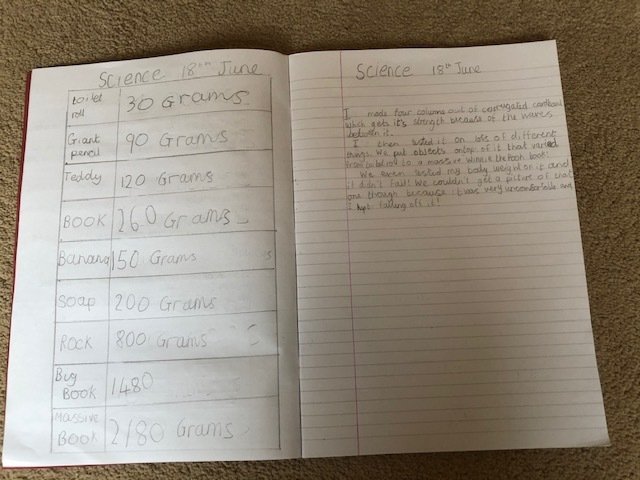 Science 18th June
toilet roll 30 Grams
Giant pencil 90 Grams
Teddy 120 Grams
BOOK 260 Grams
Banana 150 Grams
Soap 200 Grams
Rock 800 Grams
Big Book 1480
Massive Book 2180 Grams
Science 18th June
I made four columns out of corrugated cardboard
which gets it's strength because of the waves
between it.
I then tested it on lots of different
things. We put objects ontop of it that varied
from toilet roll to a massive Winnie the Pooh book!
We even tested my body weight on it and
it didn't fail! We couldn't get a picture of that
one though because it was very uncomfortable and
I kept falling off it!